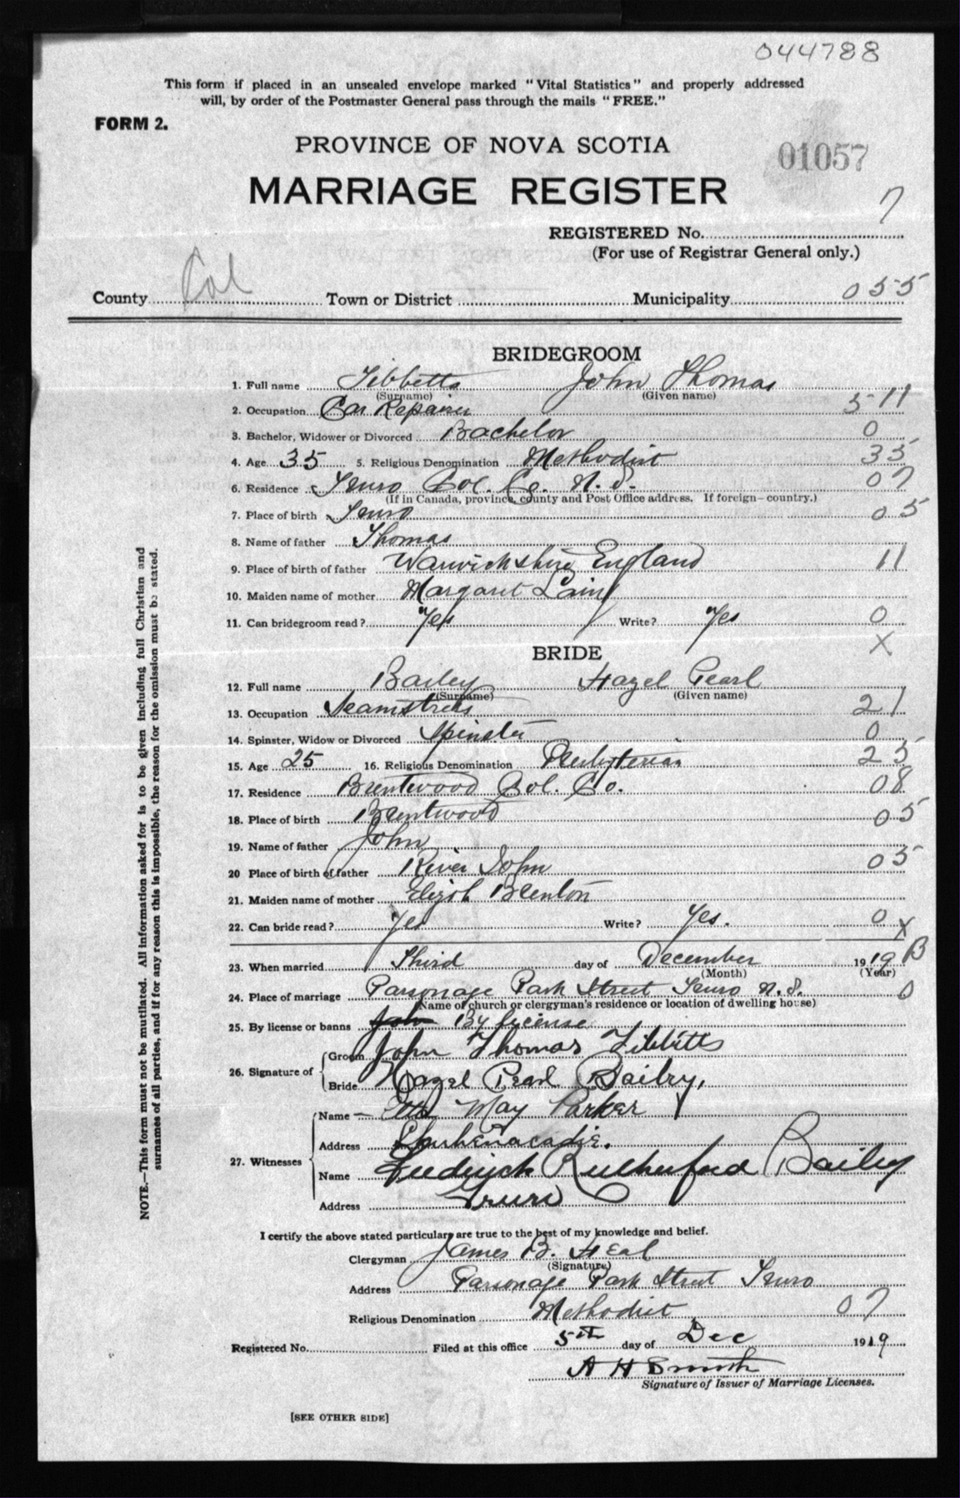 044788
This form if placed in an unsealed envelope marked "Vital Statistics" and properly addressed
will, by order of the Postmaster General pass through the mails "FREE."
FORM 2.
PROVINCE OF NOVA SCOTIA
01057
MARRIAGE REGISTER
7
REGISTERED No.
(For use of Registrar General only.)
County Col Town or District Municipality 055
BRIDEGROOM
1. Full name Tibbetts John Thomas
(Surname) (Given name)
2. Occupation Car Repairer 511
3. Bachelor, Widower or Divorced Bachelor 0
4. Age 35 5. Religious Denomination Methodist 35
6. Residence Truro Col. Co. N.S. 07
(If in Canada, province, county and Post Office address. If foreign—country.)
7. Place of birth Truro 05
8. Name of father Thomas
9. Place of birth of father Warwickshire England 11
10. Maiden name of mother Margaret
11. Can bridegroom read? Yes Write? Yes 0
X
BRIDE
12. Full name Bailey Hazel Pearl
(Surname) (Given name)
13. Occupation Seamstress 21
14. Spinster, Widow or Divorced Spinster 0
15. Age 25 16. Religious Denomination Presbyterian 25
17. Residence Brentwood Col. Co. 08
18. Place of birth Brentwood 05
19. Name of father John
20 Place of birth of father River John 05
21. Maiden name of mother Brenton
22. Can bride read? Yes Write? Yes. 0
X
23. When married Third day of December 1919 B
(Month) (Year)
24. Place of marriage Parsonage Park Street Truro N.S. 0
(Name of church or clergyman's residence or location of dwelling house)
25. By license or banns By license
26. Signature of Groom John Thomas Tibbitts
Bride Hazel Pearl Bailey,
27. Witnesses Name May Parker
Address Shubenacadie.
Name Rutherford Bailey
Address Truro
I certify the above stated particulars are true to the best of my knowledge and belief.
Clergyman James B. Heal
(Signature)
Address Parsonage Park Street Truro
Religious Denomination Methodist 07
Registered No. Filed at this office 5th day of Dec 1919
A H Smith
Signature of Issuer of Marriage Licenses.
[SEE OTHER SIDE]
NOTE.—This form must not be mutilated. All information asked for is to be given including full Christian and
surnames of all parties, and if for any reason this is impossible, the reason for the omission must be stated.